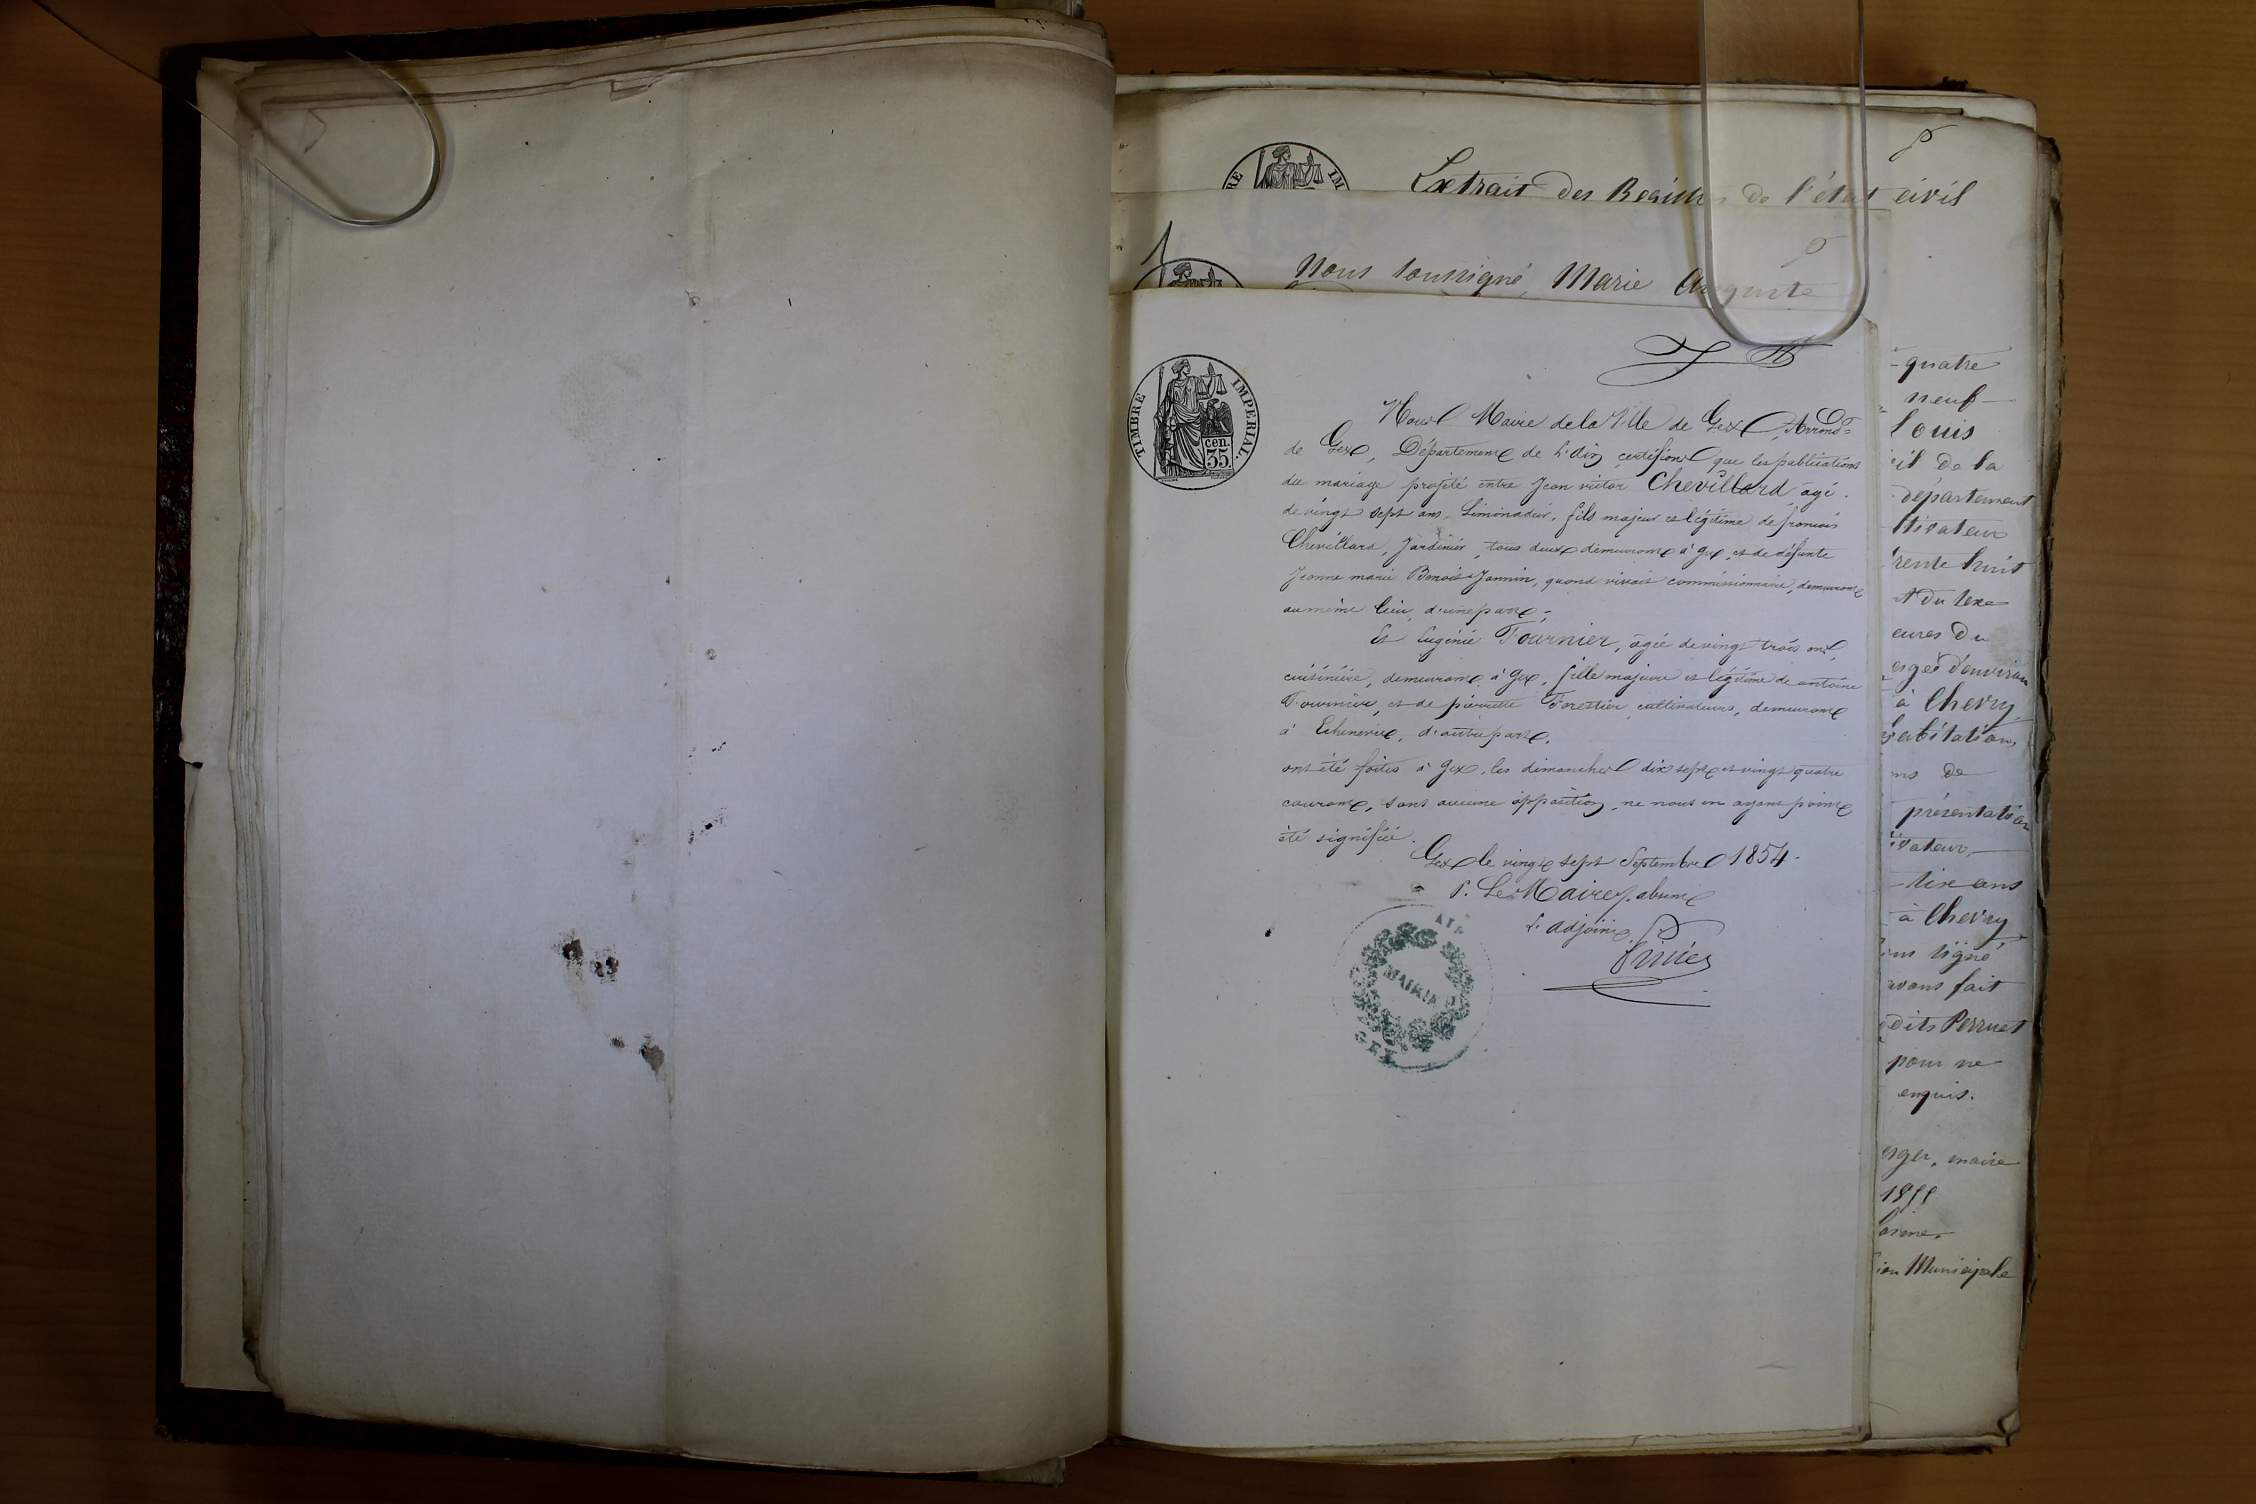 Extrait des Registres de l'état civil
Nous soussigné, Marie Auguste
TIMBRE IMPERIAL.
35 cen.
Nous Maire de la Ville de Gex, Arrondt
de Gex, Département de l'Ain certifions que les publications
du mariage projeté entre Jean victor Chevillard agé
de vingt sept ans, Limonadier, fils majeur et légitime de françois
Chevillard, Jardinier, tous deux demeurant à Gex, et de défunte
Jeanne marie Benoit-Jannin, quand vivait commissionnaire, demeurant
au même lieu, d'une part,-
Et Eugénie Fournier, agée de vingt trois ans,
cuisinière, demeurant à Gex, fille majeure et légitime de antoine
Fournier, et de pierrette Forestier, cultivateurs, demeurant
à Echenevex, d'autre part,
ont été faites à Gex, les dimanches dix sept et vingt quatre
courant, sans aucune opposition, ne nous en ayant point
été signifiée.
Gex le vingt sept Septembre 1854.
P. Le Maire absent
L'adjoint
MAIRIE
GEX
quatre
neuf
Louis
il de la
département
ltivateur
rente huit
et du sexe
eures du
erger d'environ
à Chevry
habitation
ns de
présentation
ivateur,
dix ans
à Chevry
signé
avons fait
dits Perruet
pour ne
enquis.
erger, maire
1855
Municipale